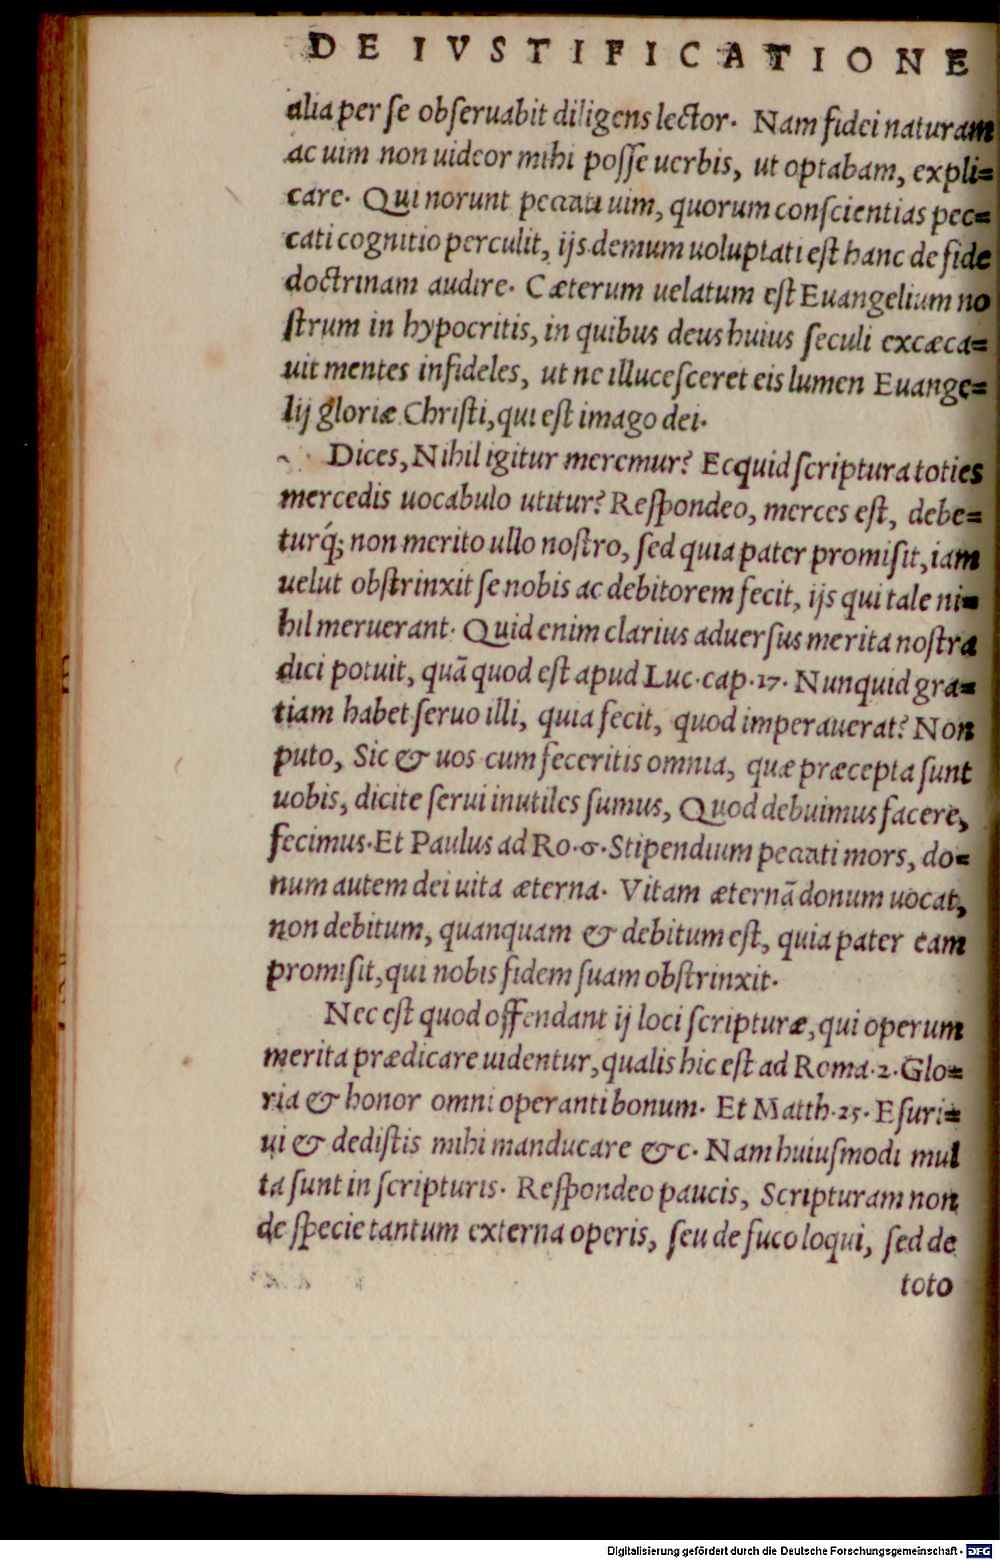 DE IVSTIFICATIONE
alia per se obſeruabit diligens lector. Nam fidei naturam
ac uim non uideor mihi poſſe uerbis, ut optabam, expli=
care. Qui norunt peccati uim, quorum conſcientias pec=
cati cognitio perculit, ijs demum uoluptati eſt hanc de fide
doctrinam audire. Cæterum uelatum eſt Euangelium no
ſtrum in hypocritis, in quibus deus huius ſeculi excæca=
uit mentes infideles, ut ne illuceſceret eis lumen Euange=
lij gloriæ Chriſti, qui eſt imago dei.
Dices, Nihil igitur meremur? Ecquid ſcriptura toties
mercedis uocabulo utitur? Reſpondeo, merces eſt, debe=
turq́; non merito ullo noſtro, ſed quia pater promiſit, iam
uelut obſtrinxit ſe nobis ac debitorem fecit, ijs qui tale ni=
hil meruerant. Quid enim clarius aduerſus merita noſtra
dici potuit, quã quod eſt apud Luc. cap. 17. Nunquid gra=
tiam habet ſeruo illi, quia fecit, quod imperauerat? Non
puto, Sic & uos cum feceritis omnia, quæ præcepta ſunt
uobis, dicite ſerui inutiles ſumus, Quod debuimus facere,
fecimus. Et Paulus ad Ro. 6. Stipendium peccati mors, do=
num autem dei uita æterna. Vitam æternã donum uocat,
non debitum, quanquam & debitum eſt, quia pater eam
promiſit, qui nobis fidem ſuam obſtrinxit.
Nec eſt quod offendant ij loci ſcripturæ, qui operum
merita prædicare uidentur, qualis hic eſt ad Roma. 2. Glo=
ria & honor omni operanti bonum. Et Matth. 25. Eſuri=
ui & dediſtis mihi manducare &c. Nam huiuſmodi mul
ta ſunt in ſcripturis. Reſpondeo paucis, Scripturam non
de ſpecie tantum externa operis, ſeu de fuco loqui, ſed de
toto
Digitalisierung gefördert durch die Deutsche Forschungsgemeinschaft - DFG